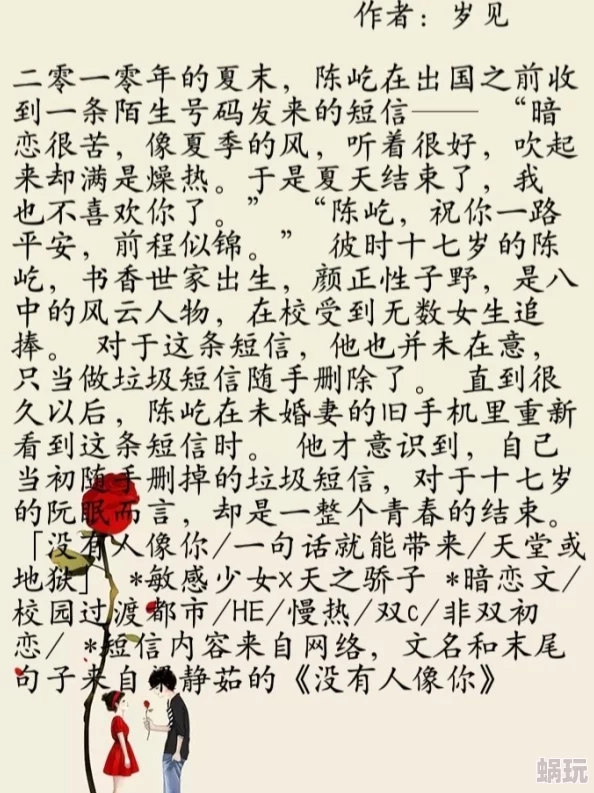 作者：岁见
二零一零年的夏末，陈屹在出国之前收
到一条陌生号码发来的短信——　“暗
恋很苦，像夏季的风，听着很好，吹起
来却满是燥热。于是夏天结束了，我
也不喜欢你了。”　“陈屹，祝你一路
平安，前程似锦。”　彼时十七岁的陈
屹，书香世家出生，颜正性子野，是八
中的风云人物，在校受到无数女生追
捧。 对于这条短信，他也并未在意，
只当做垃圾短信随手删除了。 直到很
久以后，陈屹在未婚妻的旧手机里重新
看到这条短信时。 他才意识到，自己
当初随手删掉的垃圾短信，对于十七岁
的阮眠而言，却是一整个青春的结束。
「没有人像你/一句话就能带来/天堂或
地狱」 *敏感少女x天之骄子 *暗恋文/
校园过渡都市/HE/慢热/双c/非双初
恋/ *短信内容来自网络，文名和末尾
句子来自梁静茹的《没有人像你》
蜗玩